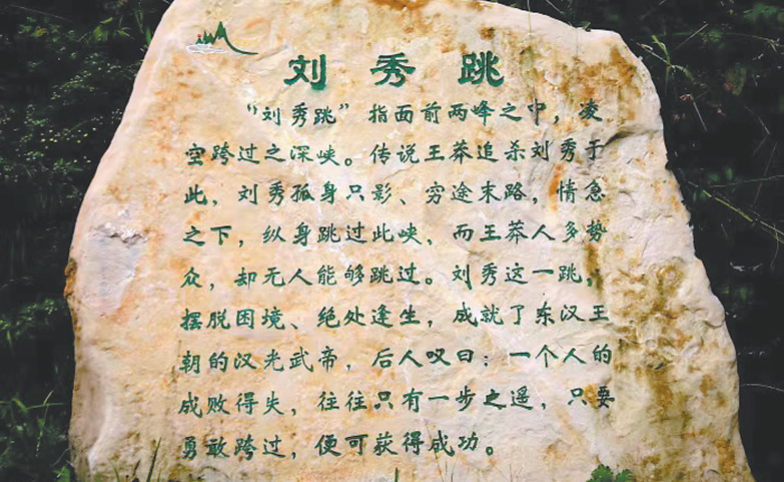 刘秀跳
“刘秀跳”指面前两峰之中，凌
空跨过之深峡。传说王莽追杀刘秀于
此，刘秀孤身只影、穷途末路，情急
之下，纵身跳过此峡，而王莽人多势
众，却无人能够跳过。刘秀这一跳，
摆脱困境、绝处逢生，成就了东汉王
朝的汉光武帝，后人叹曰：一个人的
成败得失，往往只有一步之遥，只要
勇敢跨过，便可获得成功。